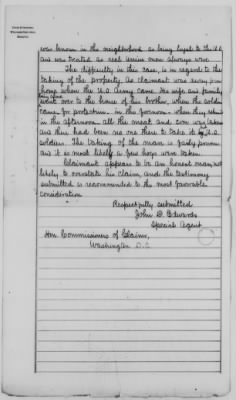 was known in the neighborhood as being loyal to the U.S.
and was treated as real union men always was.
The difficulty in this case, is in regard to the
taking of the property. As claimant was away from
home when the U.S. Army came. His wife and family
went over to the house of his brother, when the soldiers
came for protection. in the forenoon. when they returned
in the afternoon all the meat and corn was taken
and there had been no one there to take it but U.S.
soldiers. The taking of the mare is fairly proven
and it is most likely a few hogs were taken.
Claimant appears to be an honest man, not
likely to overstate his claim, and the testimony
submitted is recommended to the most favorable
consideration
Respectfully submitted
John D. Edwards
Special Agent
Hon. Commissioners of Claims,
Washington D.C.